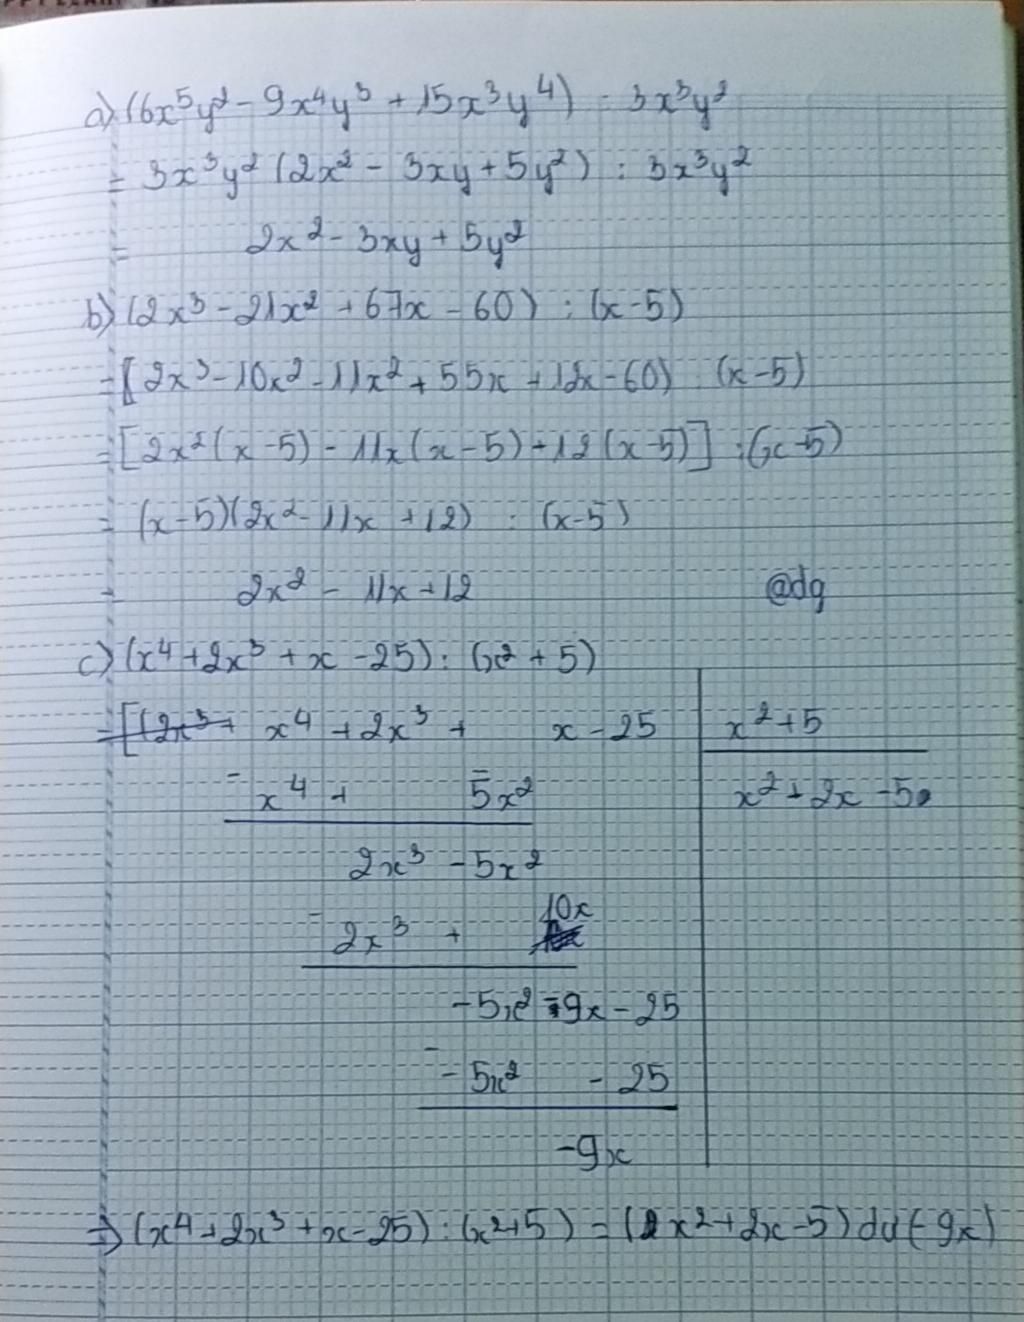 a) (6x⁵y² - 9x⁴y³ + 15x³y⁴) : 3x³y²
= 3x³y² (2x² - 3xy + 5y²) : 3x³y²
= 2x² - 3xy + 5y²
b) (2x³ - 21x² + 67x - 60) : (x - 5)
= [2x³ - 10x² - 11x² + 55x + 12x - 60) : (x - 5)
= [2x²(x - 5) - 11x(x - 5) + 12(x - 5)] : (x - 5)
= (x - 5)(2x² - 11x + 12) : (x - 5)
= 2x² - 11x + 12 @dg
c) (x⁴ + 2x³ + x - 25) : (x² + 5)
x⁴ + 2x³ + x - 25 x² + 5
- x⁴ + 5x² x² + 2x - 5
2x³ - 5x²
- 2x³ + 10x
- 5x² - 9x - 25
- - 5x² - 25
- 9x
=> (x⁴ + 2x³ + x - 25) : (x² + 5) = (x² + 2x - 5) dư (-9x)